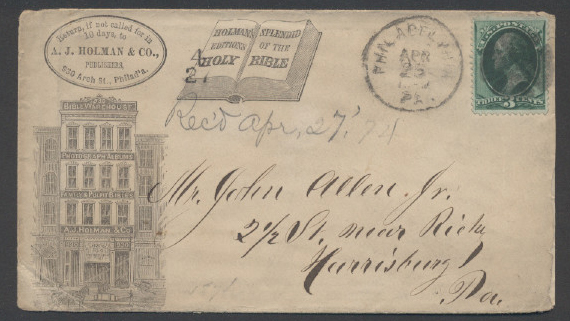 Return, if not called for in
10 days, to
A. J. HOLMAN & CO.,
PUBLISHERS,
930 Arch St., Philad'a.
HOLMAN'S SPLENDID
EDITIONS OF THE
HOLY BIBLE
PHILADELPHIA
APR
PA.
U.S. POSTAGE
THREE 3 CENTS
Rec'd Apr, 27, 74
BIBLE WAREHOUSE
PHOTOGRAPH ALBUMS
FAMILY & PULPIT BIBLES
A. J. HOLMAN & CO.
930
Mr. John Allen Jr.
2½ St. near
Harrisburg
Pa.